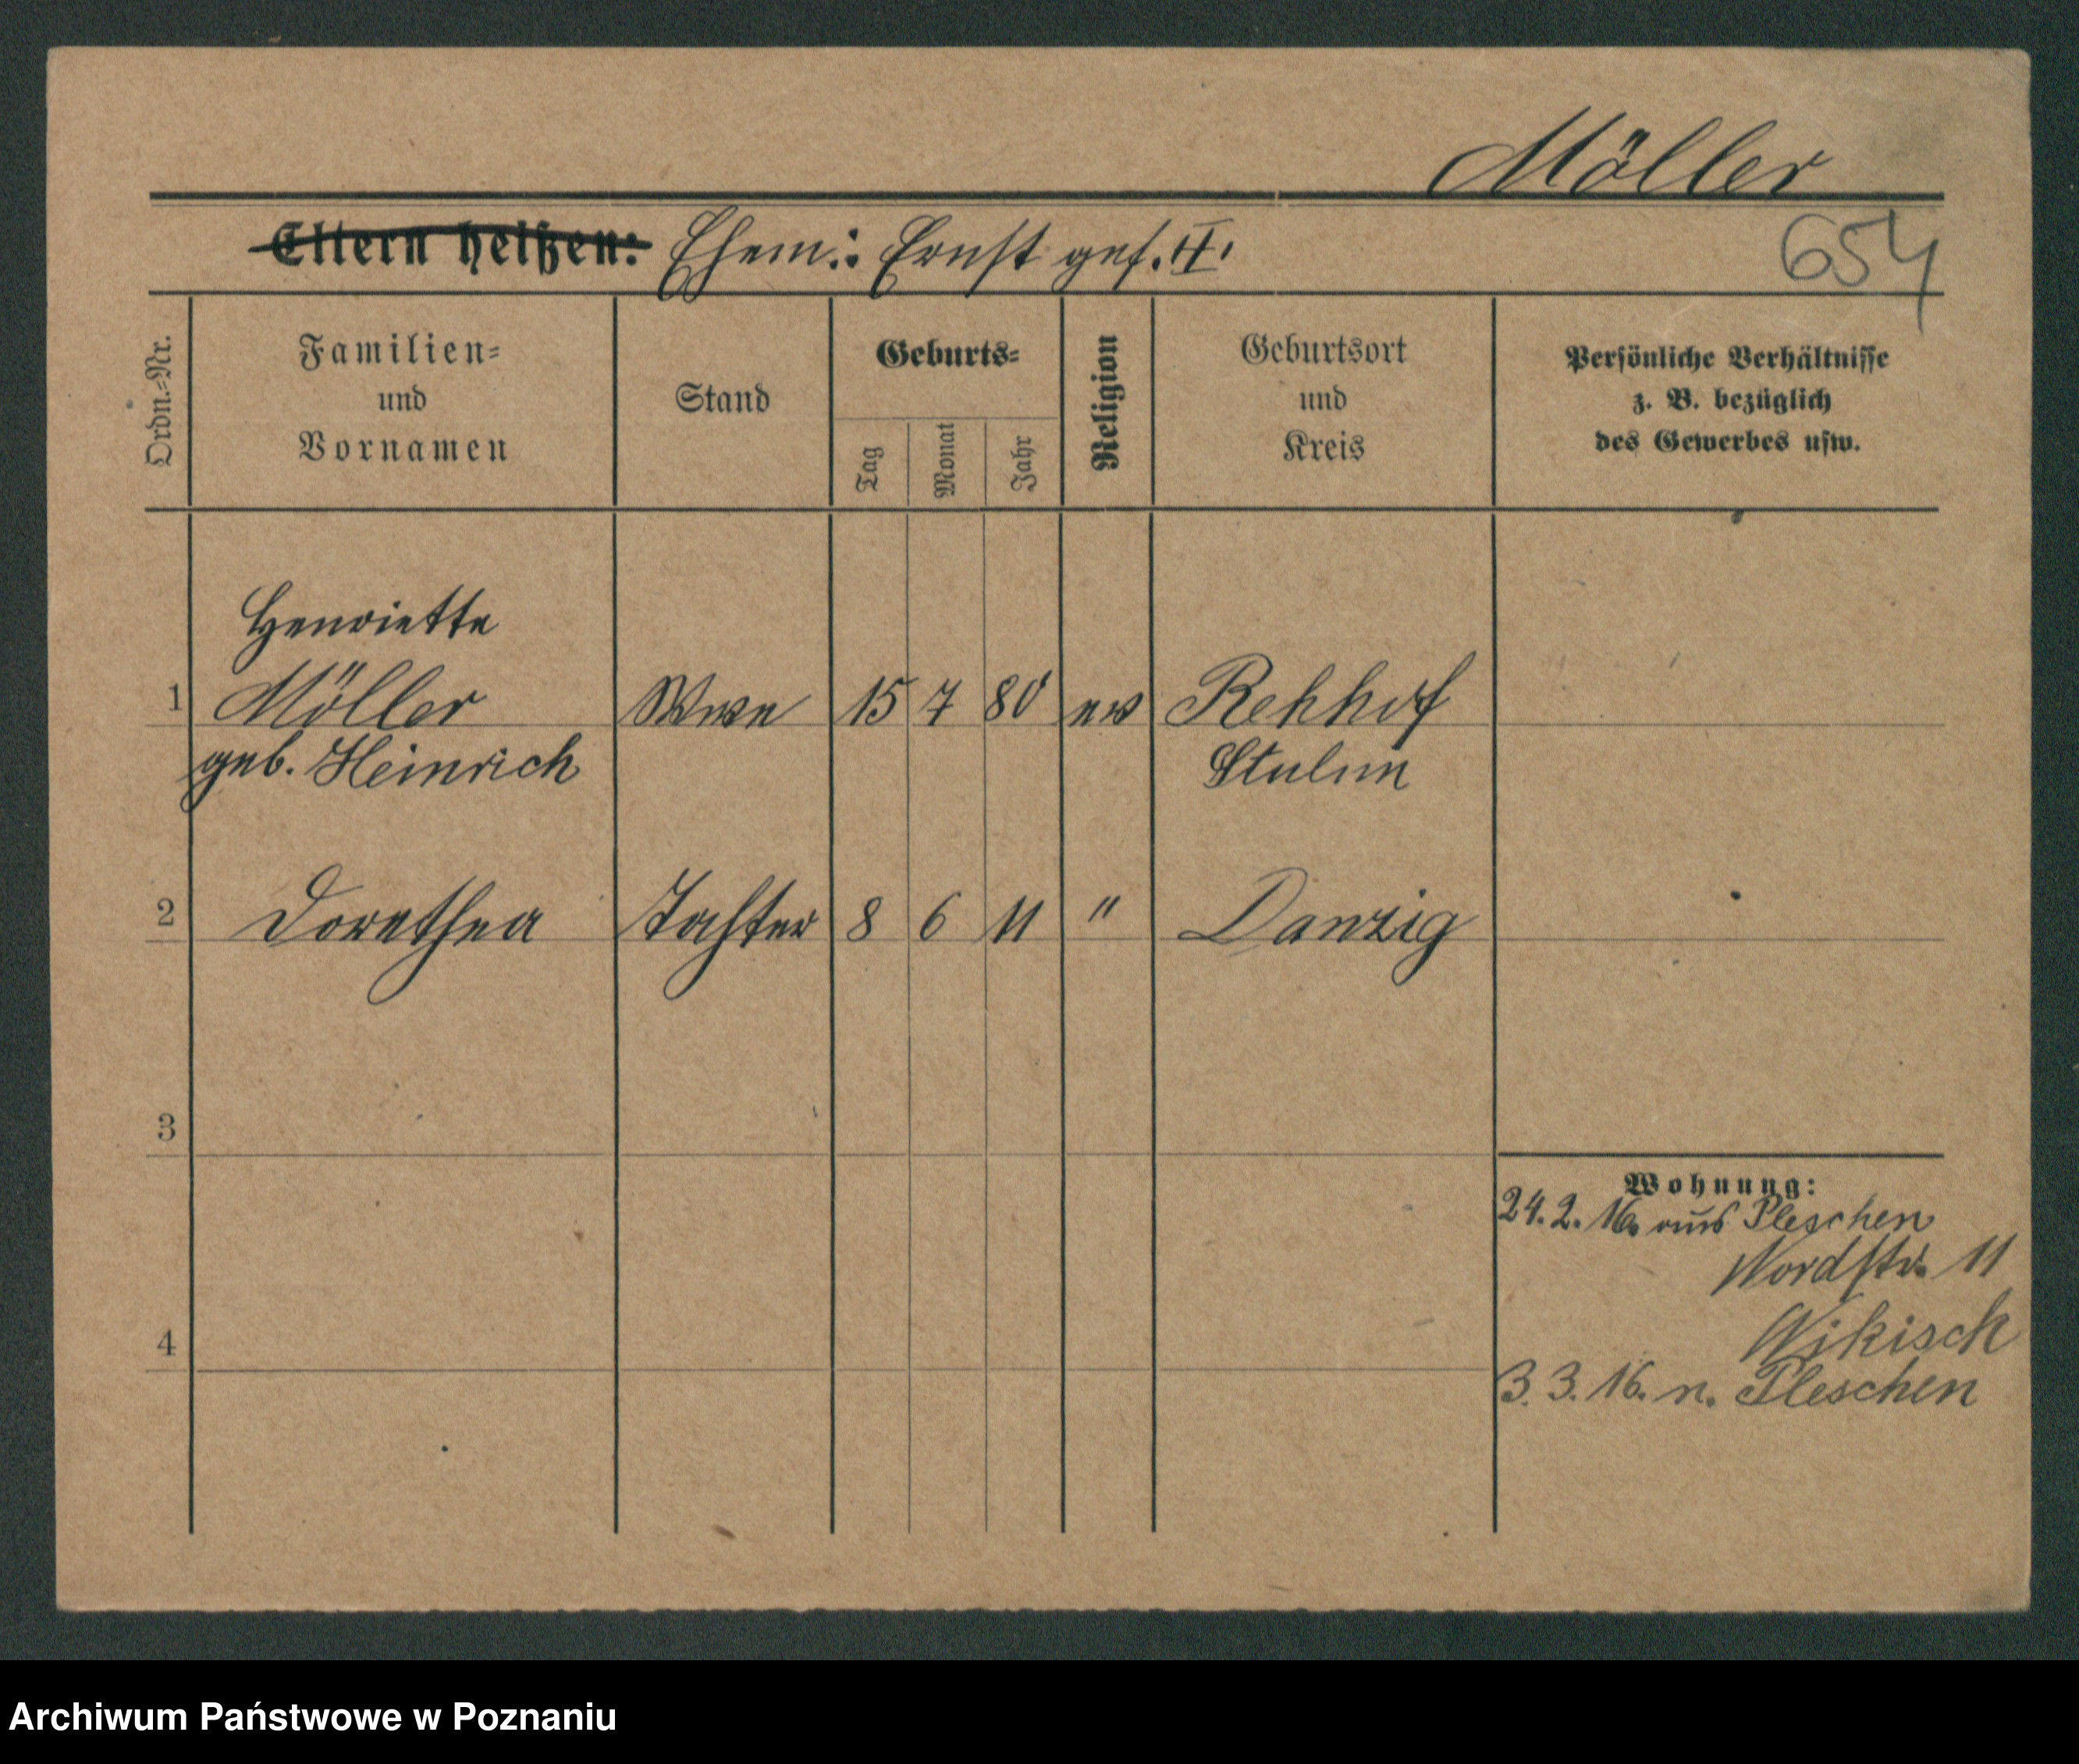 Möller
Eltern heißen: Ehem.: Ernst gef. II.
654
Ordn.-Nr.
Familien-
und
Vornamen
Stand
Geburts-
Tag
Monat
Jahr
Religion
Geburtsort
und
Kreis
Persönliche Verhältnisse
z. B. bezüglich
des Gewerbes usw.
Henriette
1 Möller Wwe 15 7 80 ev Rehhof
geb. Heinrich Stuhm
2 Dorethea Tochter 8 6 11 " Danzig
3
Wohnung:
24. 2. 16. aus Pleschen
Nordstr. 11
4
Wikisch
3. 3. 16. n. Pleschen
Archiwum Państwowe w Poznaniu